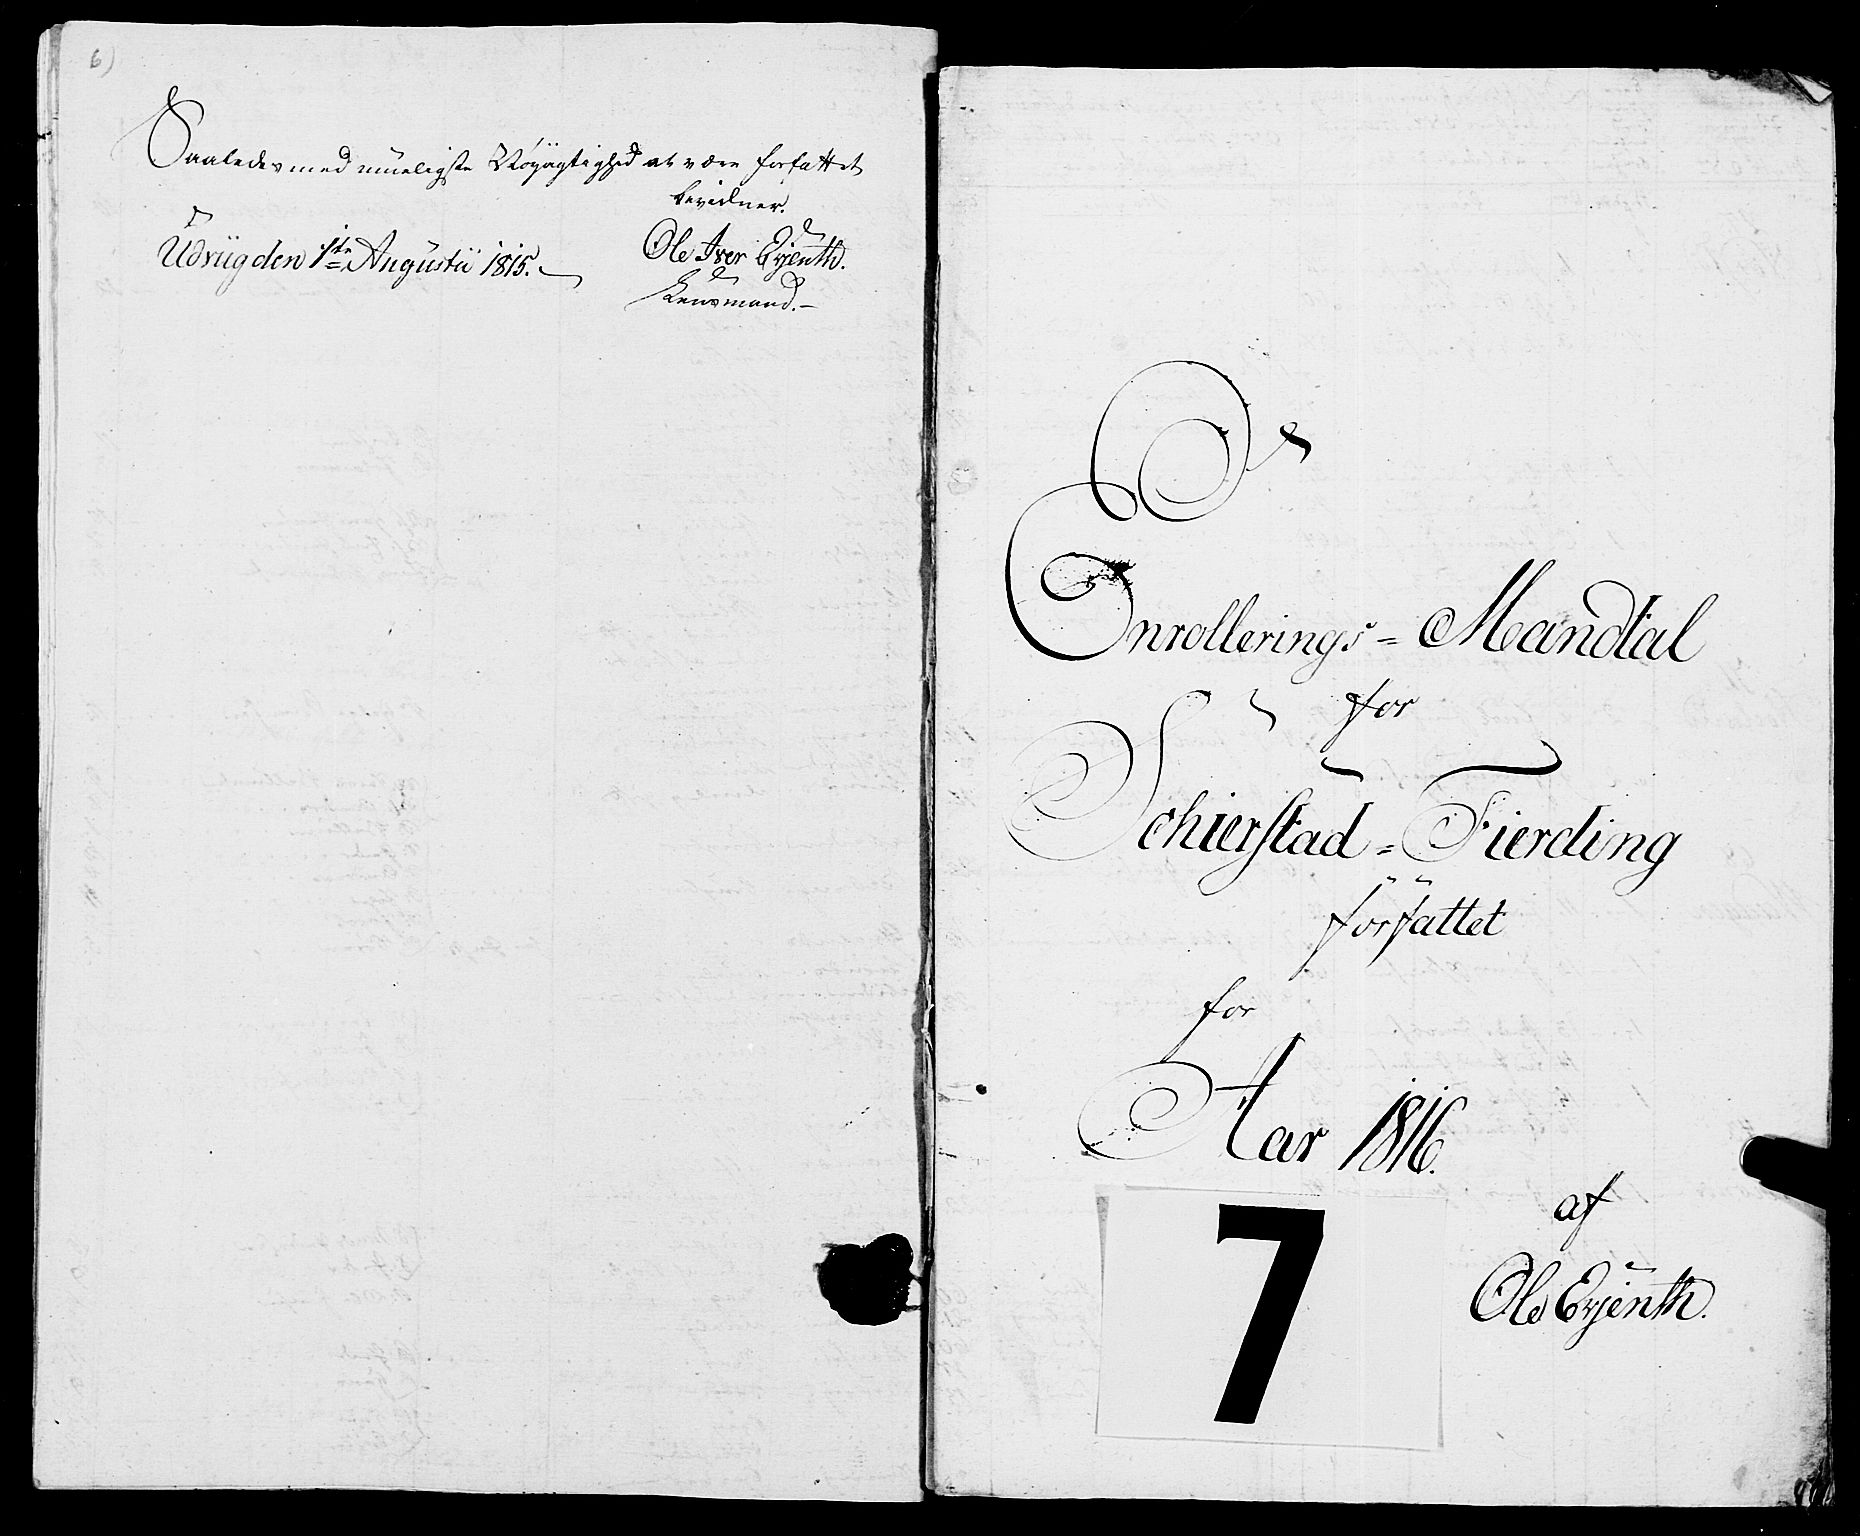 6)
Saaledes med mueligste Nøyagtighed at være forfattet
bevidner.
Udviig den 1te Augustii 1815.
Ole Iver Evjenth.
Lensmand.
Enrollerings = Mandtal
for
Schierstad = Fierding
forfattet
for
Aar 1816.
af
Ole Evjenth.
7